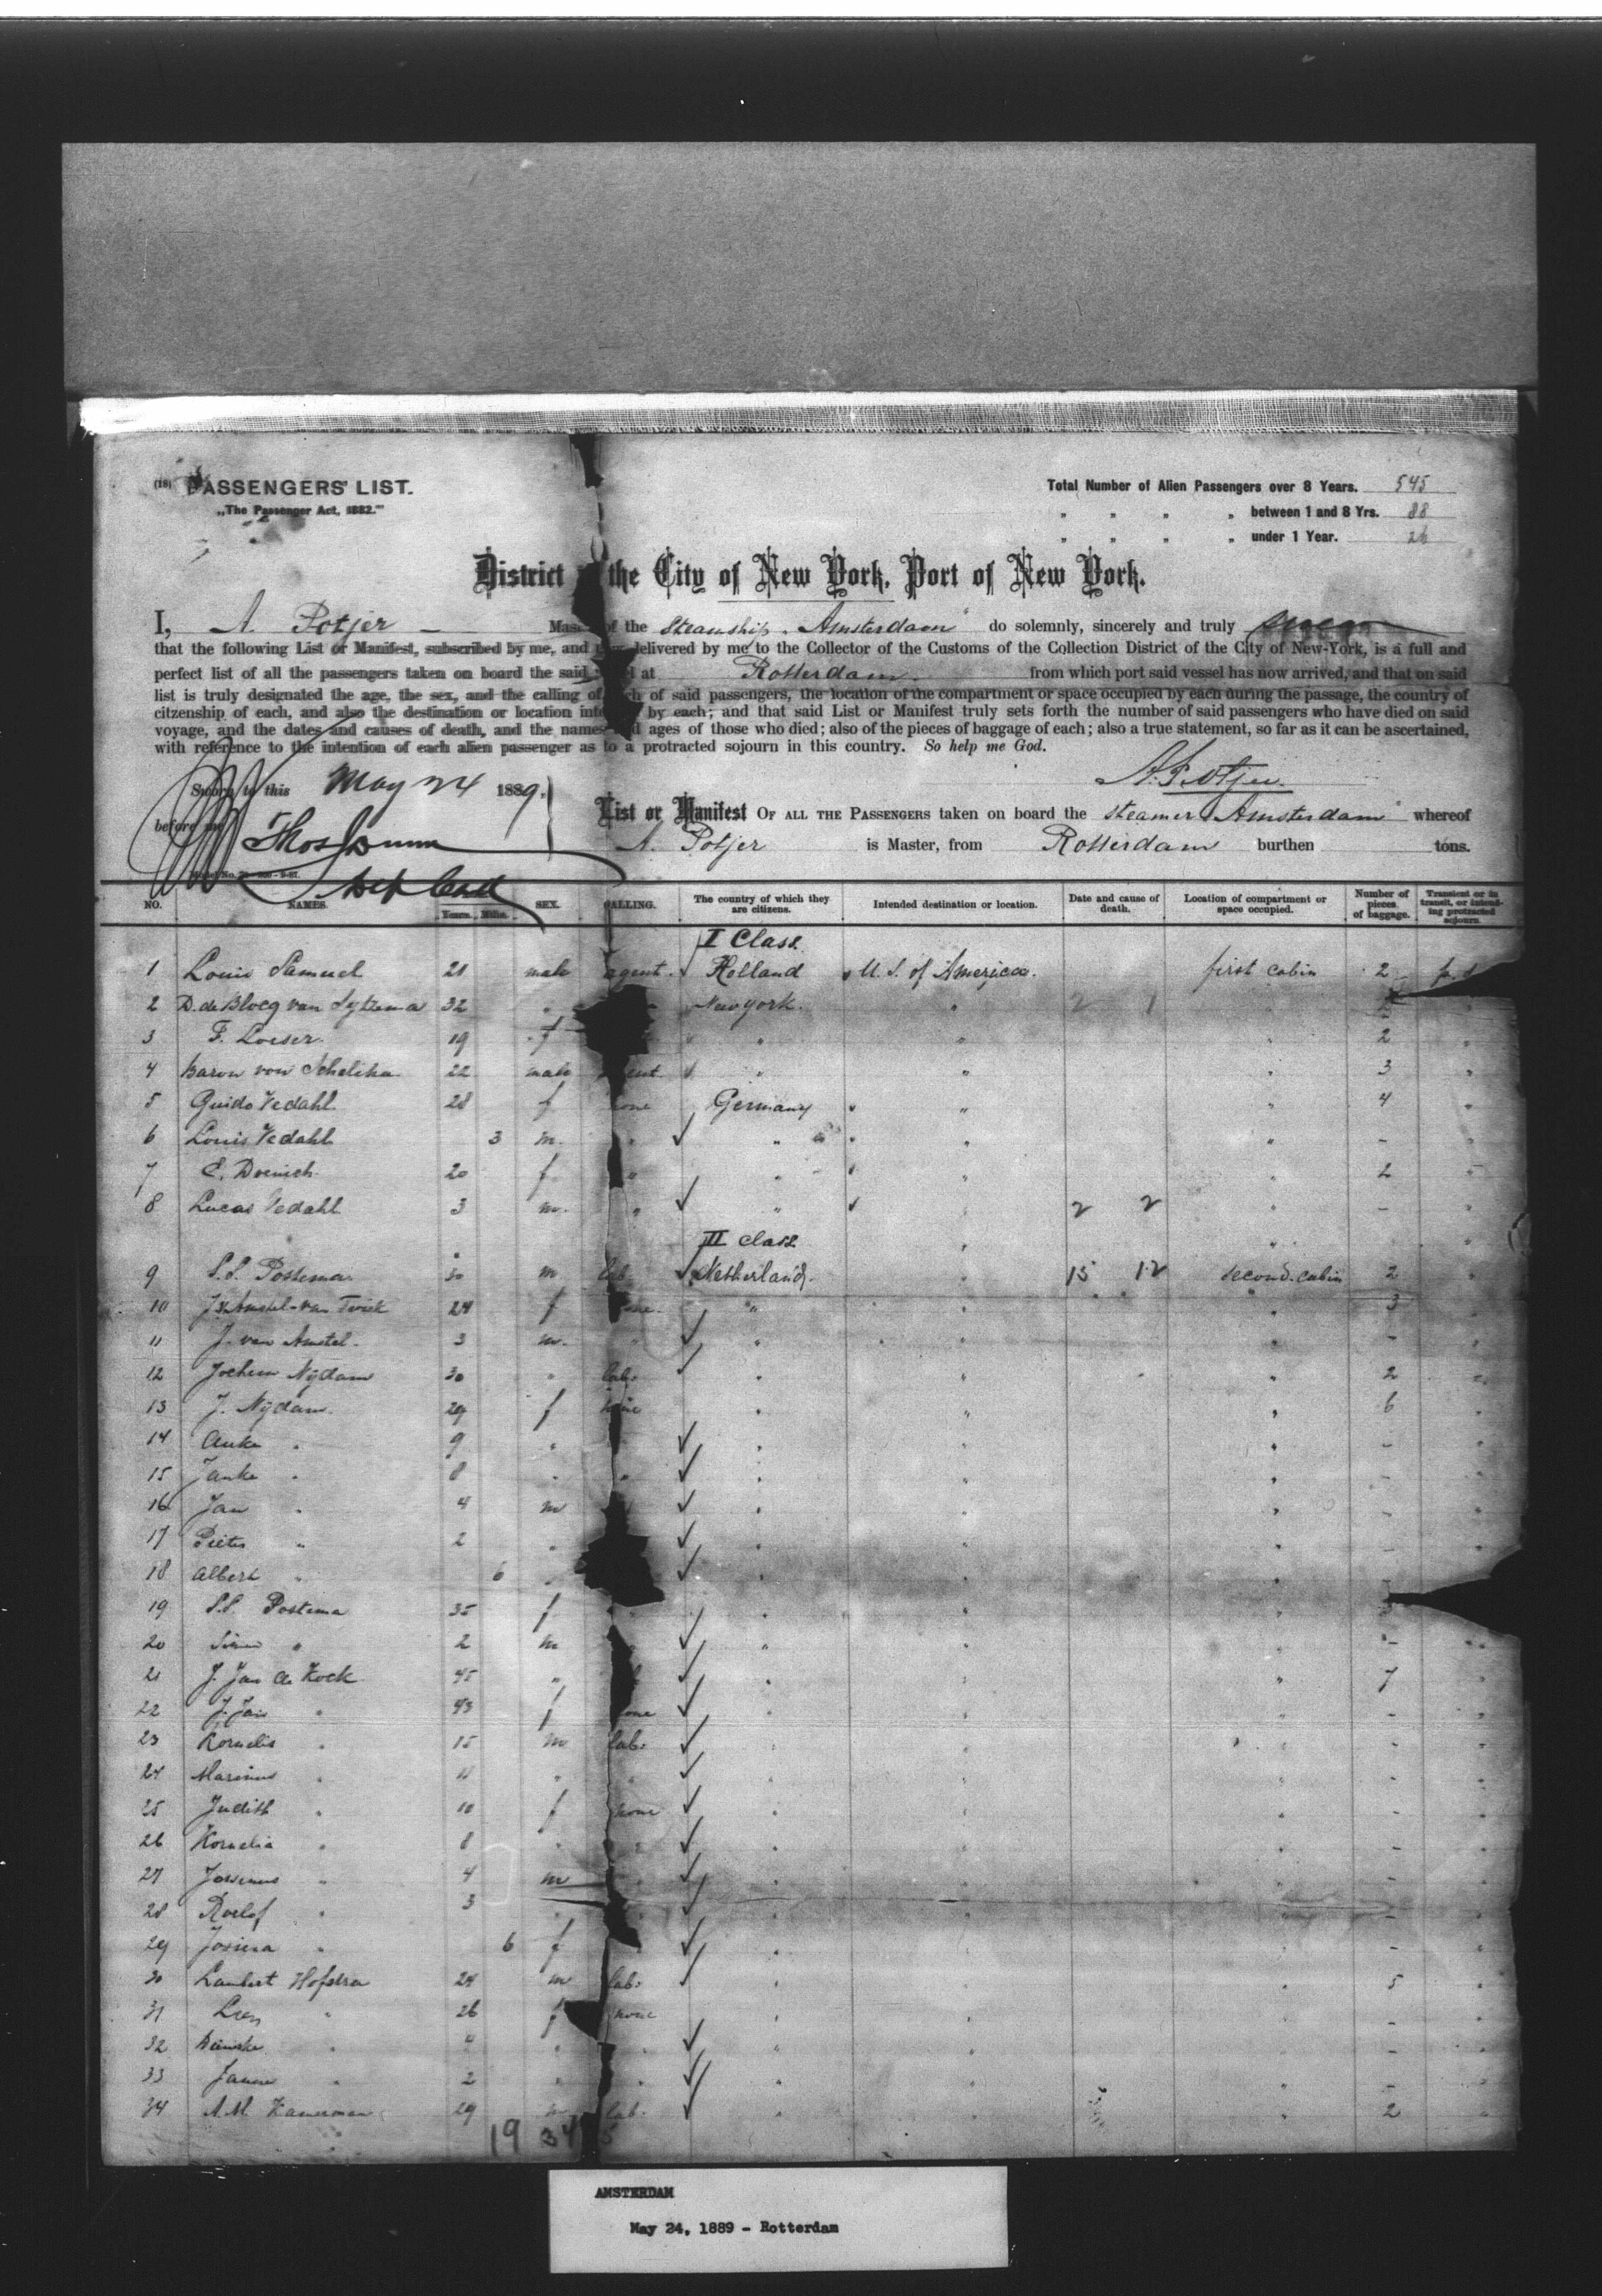 (18) PASSENGERS' LIST.
„The Passenger Act, 1882."
Total Number of Alien Passengers over 8 Years. 545
„ „ „ „ between 1 and 8 Yrs. 88
„ „ „ „ under 1 Year. 26
District the City of New York, Port of New York.
I, A. Potjer Mas of the Steamship „Amsterdam" do solemnly, sincerely and truly swear
that the following List or Manifest, subscribed by me, and delivered by me to the Collector of the Customs of the Collection District of the City of New-York, is a full and
perfect list of all the passengers taken on board the said at Rotterdam from which port said vessel has now arrived, and that on said
list is truly designated the age, the sex, and the calling of ch of said passengers, the location of the compartment or space occupied by each during the passage, the country of
citzenship of each, and also the destination or location inte by each; and that said List or Manifest truly sets forth the number of said passengers who have died on said
voyage, and the dates and causes of death, and the names d ages of those who died; also of the pieces of baggage of each; also a true statement, so far as it can be ascertained,
with reference to the intention of each alien passenger as to a protracted sojourn in this country. So help me God.
Sworn to this May 24 1889.
A. Potjer
before me Thos Dunn
List or Manifest OF ALL THE PASSENGERS taken on board the steamer Amsterdam" whereof
A. Potjer is Master, from Rotterdam burthen tons.
NO. NAMES. Years. Mths. SEX. CALLING. The country of which they are citizens. Intended destination or location. Date and cause of death. Location of compartment or space occupied. Number of pieces of baggage. Transient or in transit, or intending protracted sojourn.
I Class
1 Louis Samuel 21 male agent. Holland U.S. of America. first cabin 2 p.s
2 D. de Blocq van Sytzema 32 " New york. " 2 1
3 F. Loeser 19 f " " " 2 "
4 Baron von Scheliha 22 male ent. " " " 3 "
5 Guido Vedahl 28 f none Germany " " 4 "
6 Louis Vedahl 3 m. " " " " -
7 E. Doenich 20 f " " " " 2 "
8 Lucas Vedahl 3 m. " " " 2 2 " -
II Class
9 S.S. Postema 30 m lab. Netherland. " 15 12 second cabin 2 "
10 J. v. Amstel-van 24 f ne. " " " 3 "
11 J. van Amstel. 3 m. " " " " -
12 Jochem Nijdam 30 " lab. " " " 2 "
13 J. Nijdam 29 f none " " " 6 "
14 Anke " 9 " " " " -
15 Janke " 8 " " " " " -
16 Jan " 4 m " " " -
17 Pieter " 2 " " " " -
18 Albert " 6 " " " " -
19 S.S. Postema 35 f " " " "
20 " 2 m " " " -
21 J. Jan de Kock 45 " " " " 7 "
22 J. Jan " 43 f one " " " -
23 Kornelis " 15 m lab. " " " -
24 Marinus " 11 " " " " -
25 Judith " 10 f none " " " -
26 Kornelia " 8 " " " " " -
27 " 4 m " " " -
28 Roelof " 3 " " " " -
29 Josina " 6 f " " " -
30 Lambert Hofstra 24 m lab. " " " 5 "
31 " 26 f none " " " -
32 " 4 " " " " " -
33 Janne " 2 " " " " " -
34 A.M. Kamerman 29 m lab. " " " 2 "
19 34 5
AMSTERDAM
May 24, 1889 - Rotterdam